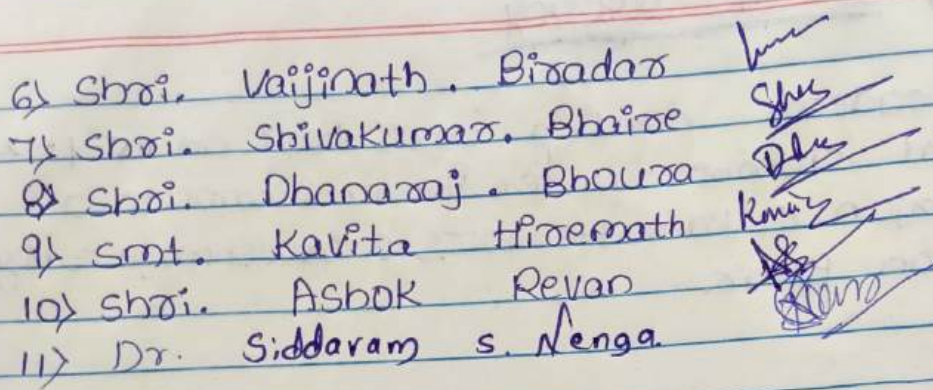 6) Shri. Vaijinath. Biradar
7) Shri. Shivakumar. Bhaire
8) Shri. Dhanaraj. Bhoura
9) Smt. Kavita Hiremath
10) Shri. Ashok Revan
11) Dr. Siddaram S. Nenga.